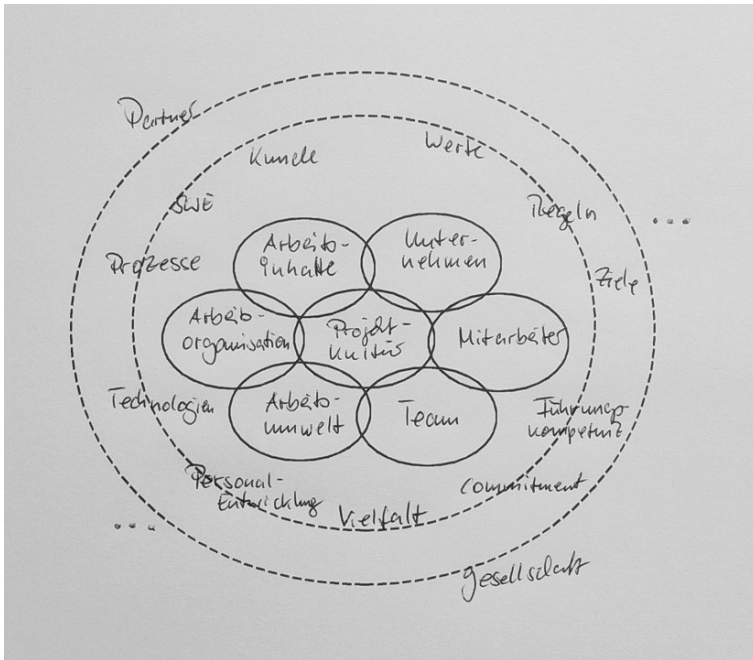 Partner
Kunde
Werte
SWE
Regeln
...
Prozesse
Arbeits-
inhalte
Unter-
nehmen
Ziele
Arbeits-
organisation
Projekt-
kultur
Mitarbeiter
Technologien
Arbeits-
umwelt
Team
Führungs-
kompetenz
Personal-
Entwicklung
Commitment
...
Vielfalt
Gesellschaft